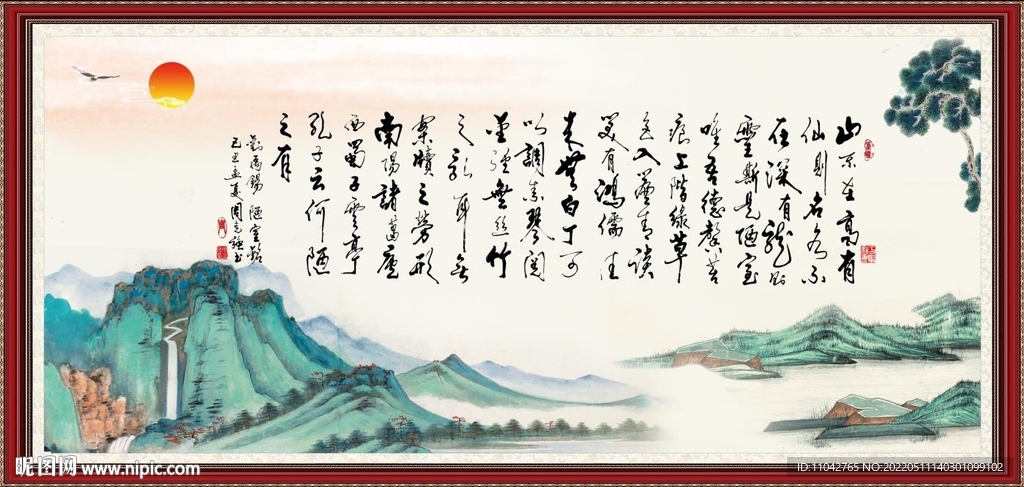 山不在高有
仙則名水不
在深有龍則
靈斯是陋室
唯吾德馨苔
痕上階綠草
色入簾青談
笑有鴻儒往
來無白丁可
以調素琴閱
金經無絲竹
之亂耳無
案牘之勞形
南陽諸葛廬
西蜀子雲亭
孔子云何陋
之有
劉禹錫 陋室銘
己丑孟夏周
昵图网 www.nipic.com
ID:11042765 NO:20220511140301099102